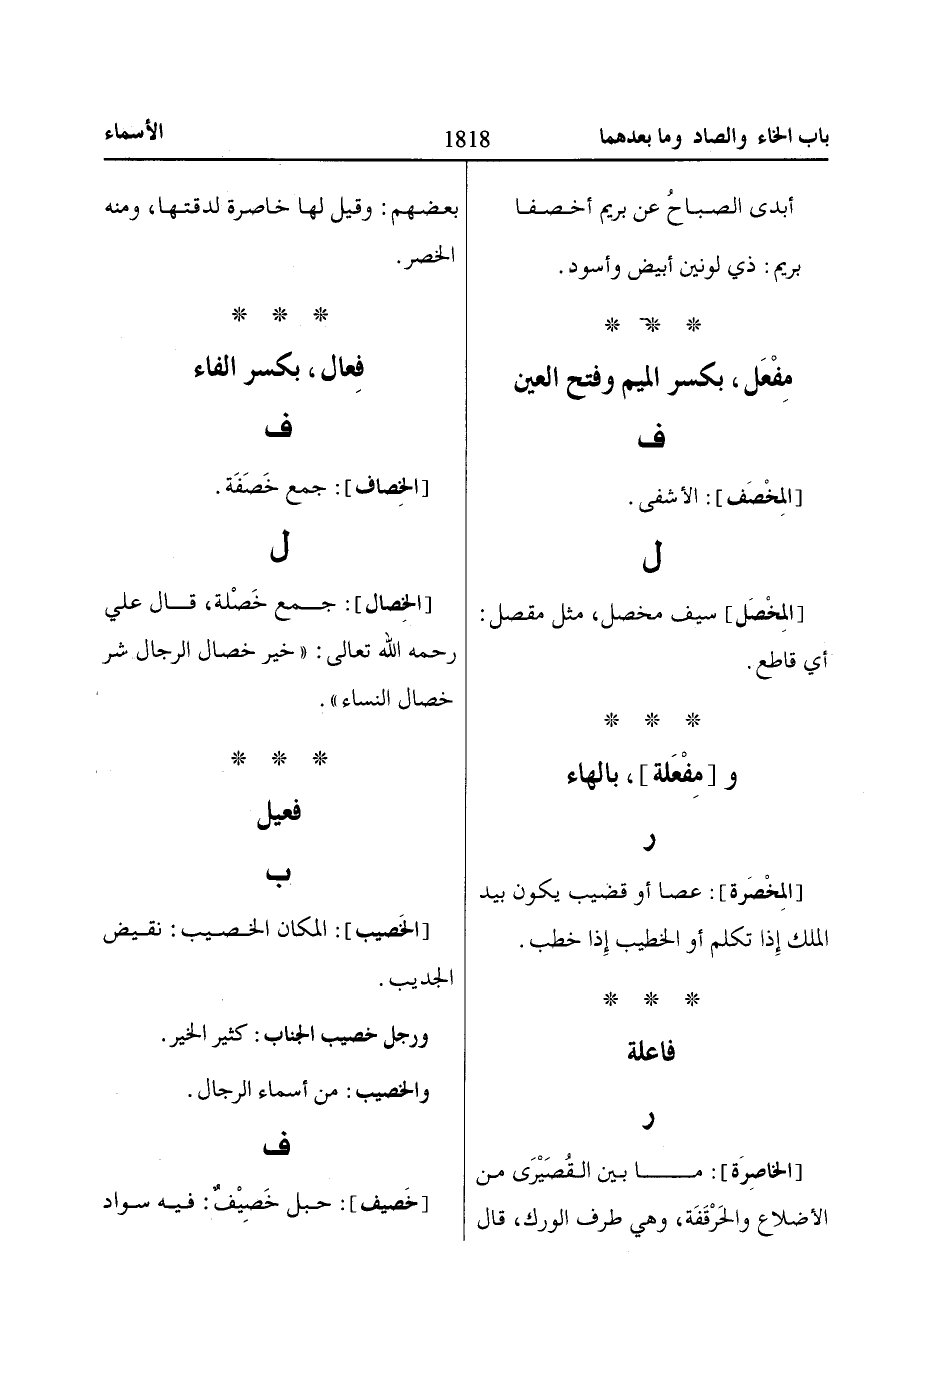 باب الخاء والصاد وما بعدهما 1818 الأسماء
أبدى الصباحُ عن بريم أخصفا
بريم: ذي لونين أبيض وأسود.
* * *
مِفْعَل، بكسر الميم وفتح العين
ف
[المِخْصَف]: الأشفى.
ل
[المِخْصَل] سيف مخصل، مثل مقصل:
أي قاطع.
* * *
و [مِفْعَلة]، بالهاء
ر
[المِخْصَرة]: عصا أو قضيب يكون بيد
الملك إِذا تكلم أو الخطيب إِذا خطب.
* * *
فاعلة
ر
[الخاصِرَة]: ما بين القُصَيْرَى من
الأضلاع والحَرْقَفَة، وهي طرف الورك، قال
بعضهم: وقيل لها خاصرة لدقتها، ومنه
الخصر.
* * *
فِعال، بكسر الفاء
ف
[الخِصاف]: جمع خَصَفَة.
ل
[الخِصال]: جمع خَصْلة، قال علي
رحمه الله تعالى: «خير خصال الرجال شر
خصال النساء».
* * *
فعيل
ب
[الخَصيب]: المكان الخصيب: نقيض
الجديب.
ورجل خصيب الجناب: كثير الخير.
والخصيب: من أسماء الرجال.
ف
[خَصيف]: حبل خَصِيْفٌ: فيه سواد